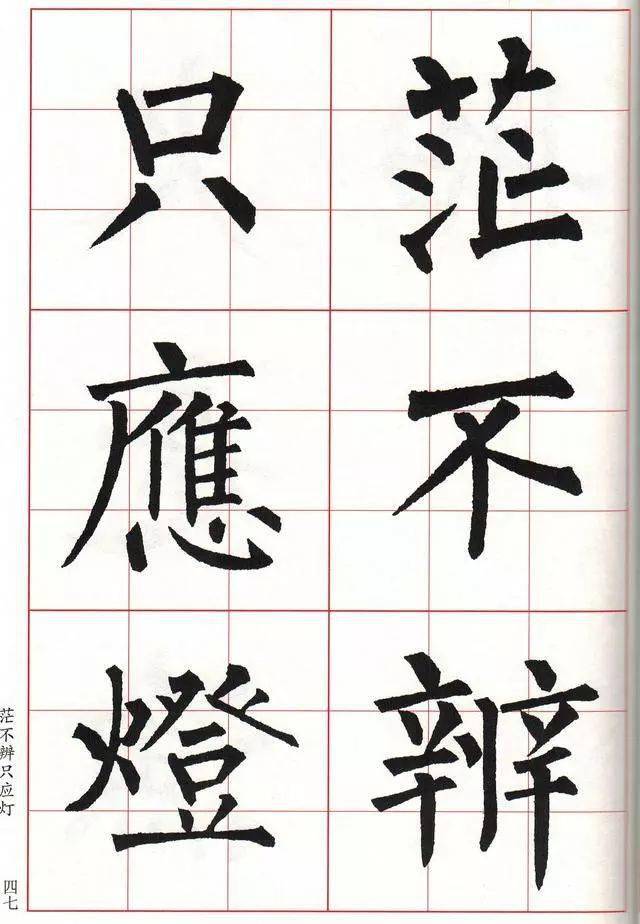 茫不辨
只應燈
茫不辨只应灯
四七